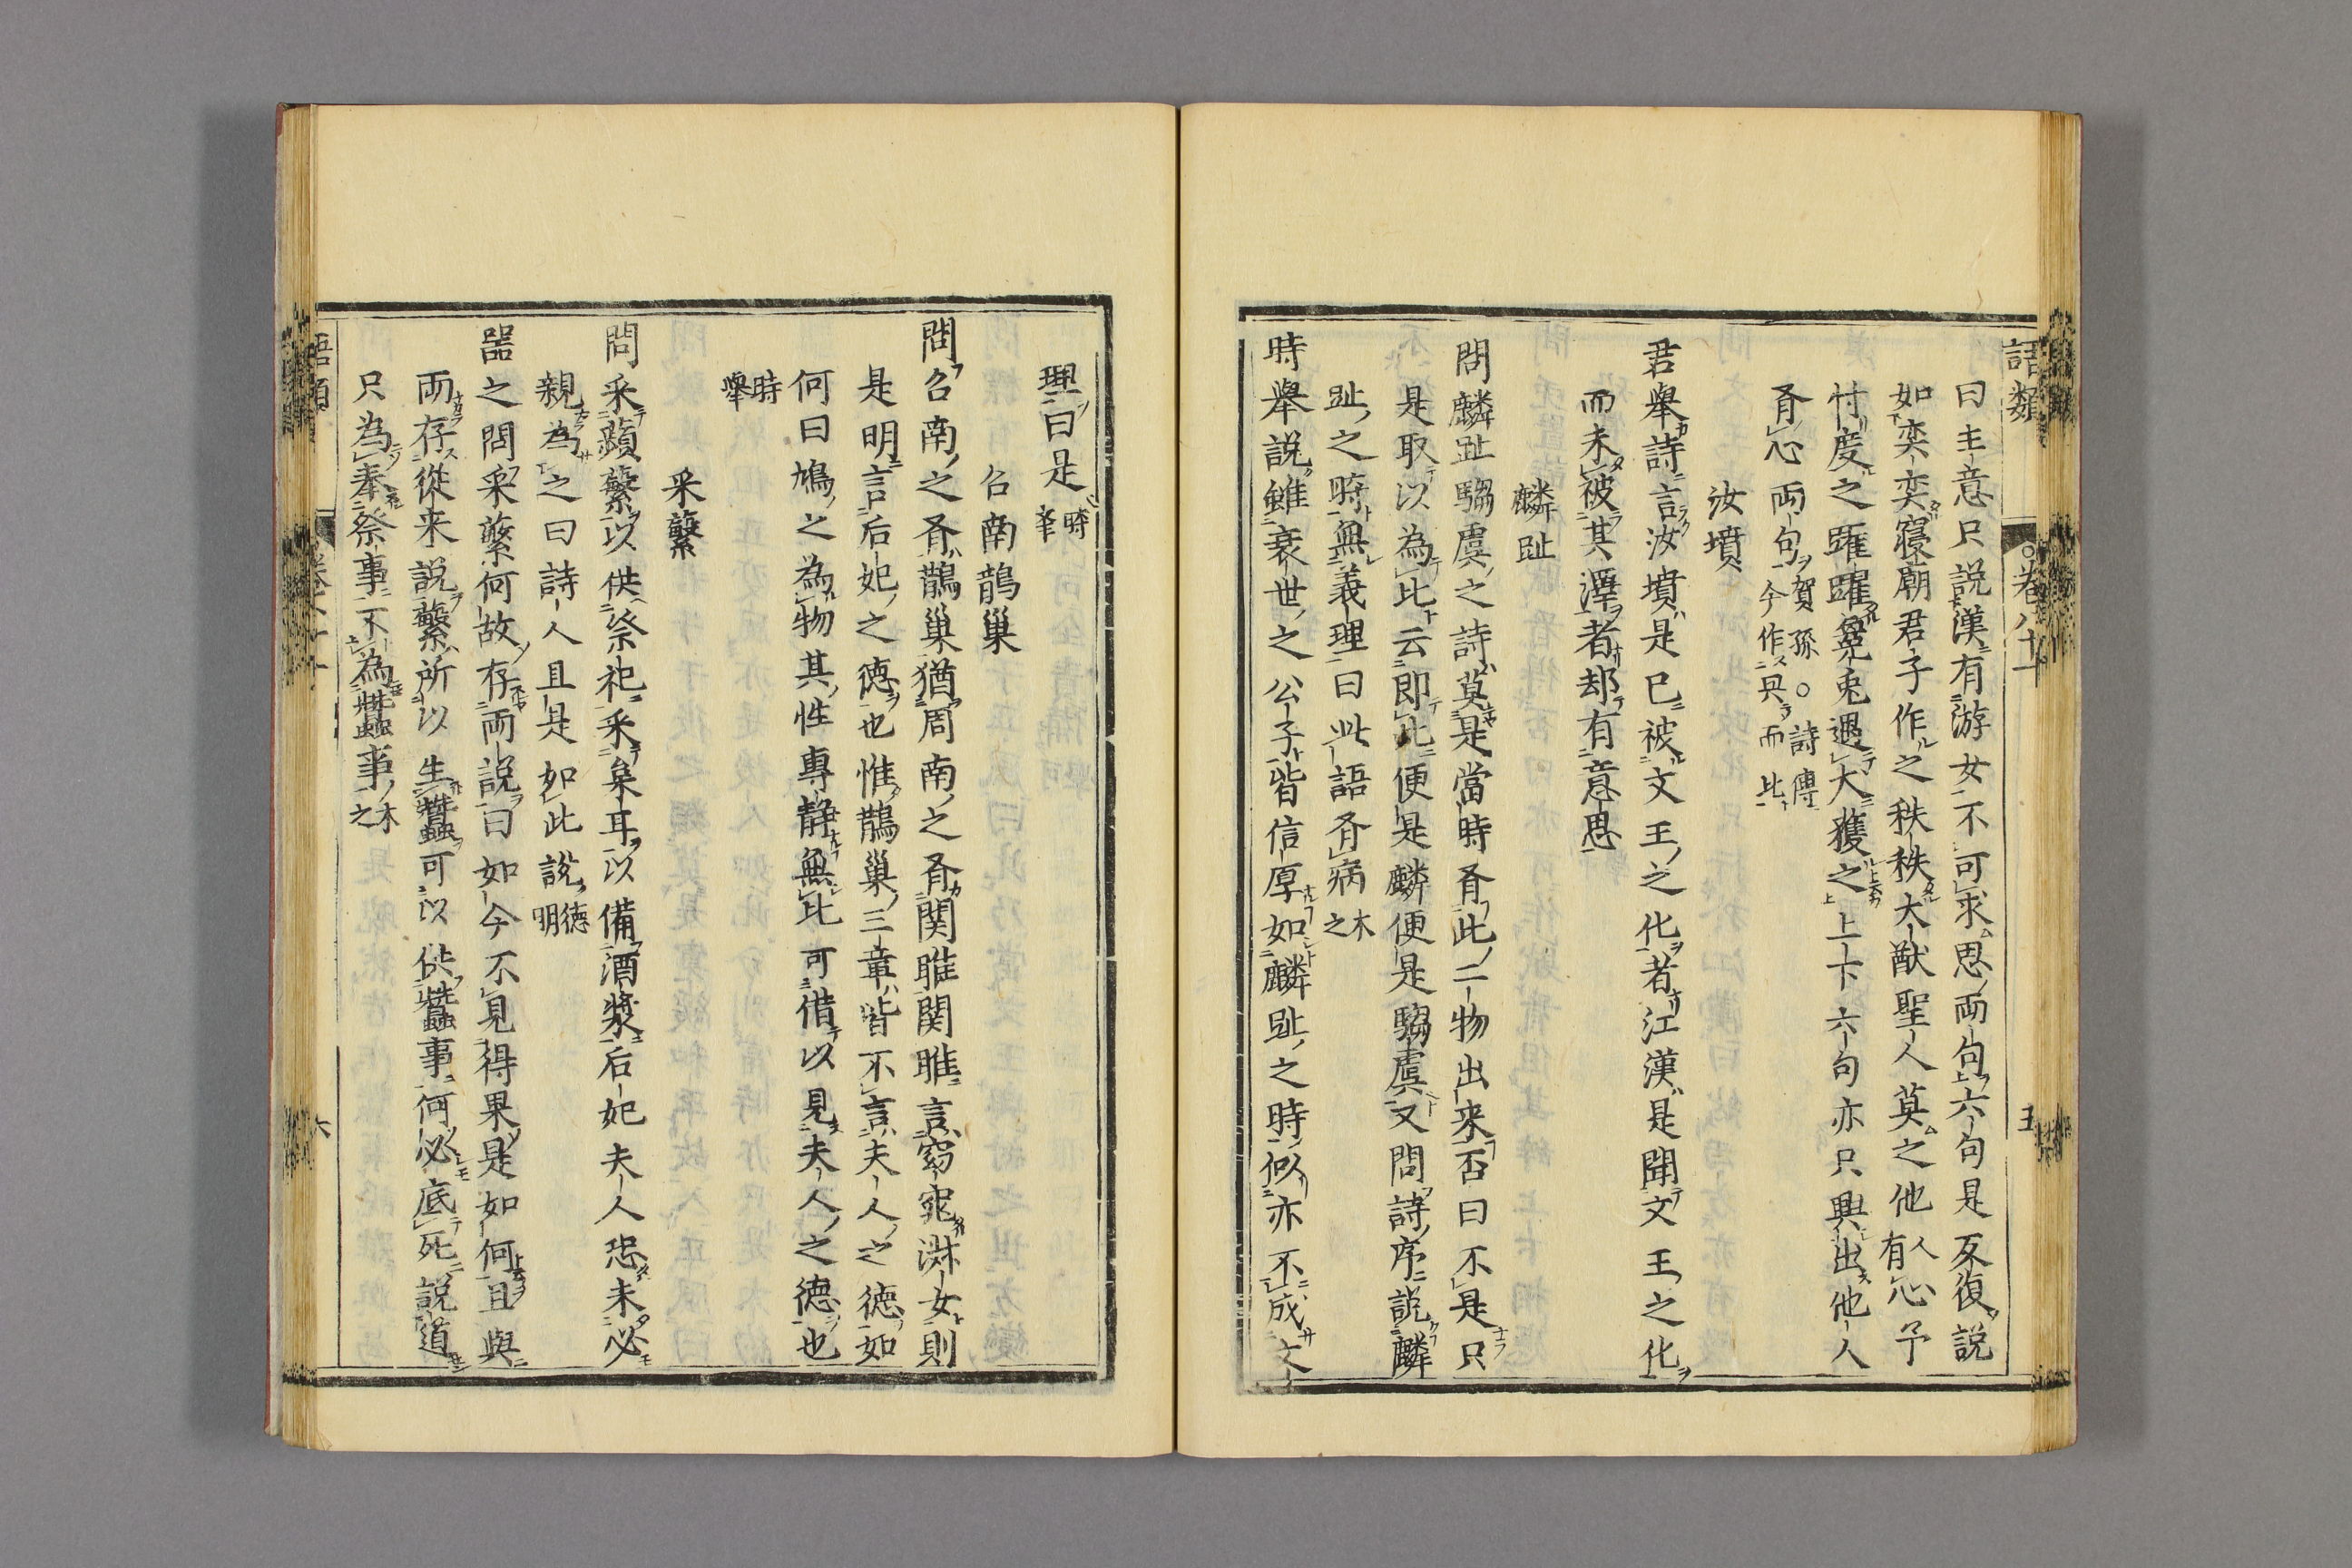 語類
○卷八十一
五
曰主意只説漢有游女不可求思兩句六句是反復説
如奕奕寢廟君子作之秩秩大猷聖人莫之他人有心予
忖度之躍躍毚兎遇犬獲之上下六句亦只興出他人
有心兩句賀孫○詩傳今作興而比
汝墳
君舉詩言汝墳是已被文王之化者江漢是聞文王之化
而未被其澤者却有意思
麟趾
問麟趾騶虞之詩莫是當時有此二物出来否曰不是只
是取以為比云即此便是麟便是騶虞又問詩序説麟
趾之時無義理曰此語有病木之
時舉説雖衰世之公子皆信厚如麟趾之時似亦不成文
理曰是時舉
召南鵲巢
問召南之有鵲巢猶周南之有関雎関雎言窈窕淑女則
是明言后妃之德也惟鵲巢三章皆不言夫人之德如
何曰鳩之為物其性專静無比可借以見夫人之德也
時舉
采蘩
問采蘋蘩以供祭祀采枲耳以備酒漿后妃夫人恐未必
親為之曰詩人且是如此説德明
器之問采蘩何故存兩説曰如今不見得果是如何且與
兩存從来説蘩所以生蠶可以供蠶事何必底死説道
只為奉祭事不為蠶事木之
語類
六